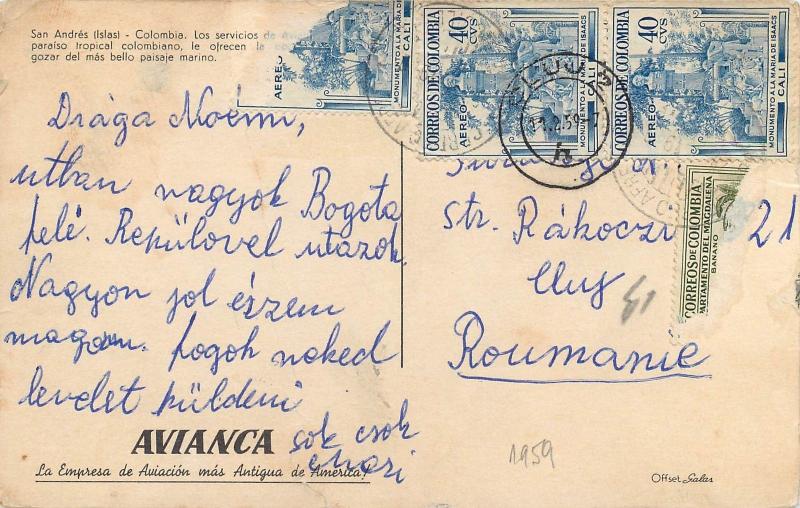 San Andrés (Islas) - Colombia. Los servicios de
paraíso tropical colombiano, le ofrecen la
gozar del más bello paisaje marino.
AEREO
MONUMENTO A LA MARIA DE ISAACS
CALI
CORREOS DE COLOMBIA
40 CVS
AEREO
MONUMENTO A LA MARIA DE ISAACS
CALI
CORREOS DE COLOMBIA
40 CVS
AEREO
MONUMENTO A LA MARIA DE ISAACS
CALI
CLUJ
CORREOS DE COLOMBIA
DEL MAGDALENA
BANANO
Drága Noémi,
utban vagyok Bogota
felé. Repülovel utazok.
Nagyon jol érzem
magam. fogok neked
levelet küldeni
sok csok
str. Rákoczi 21
Cluj
41
Roumanie
AVIANCA
La Empresa de Aviación más Antigua de América
1959
Offset Salas